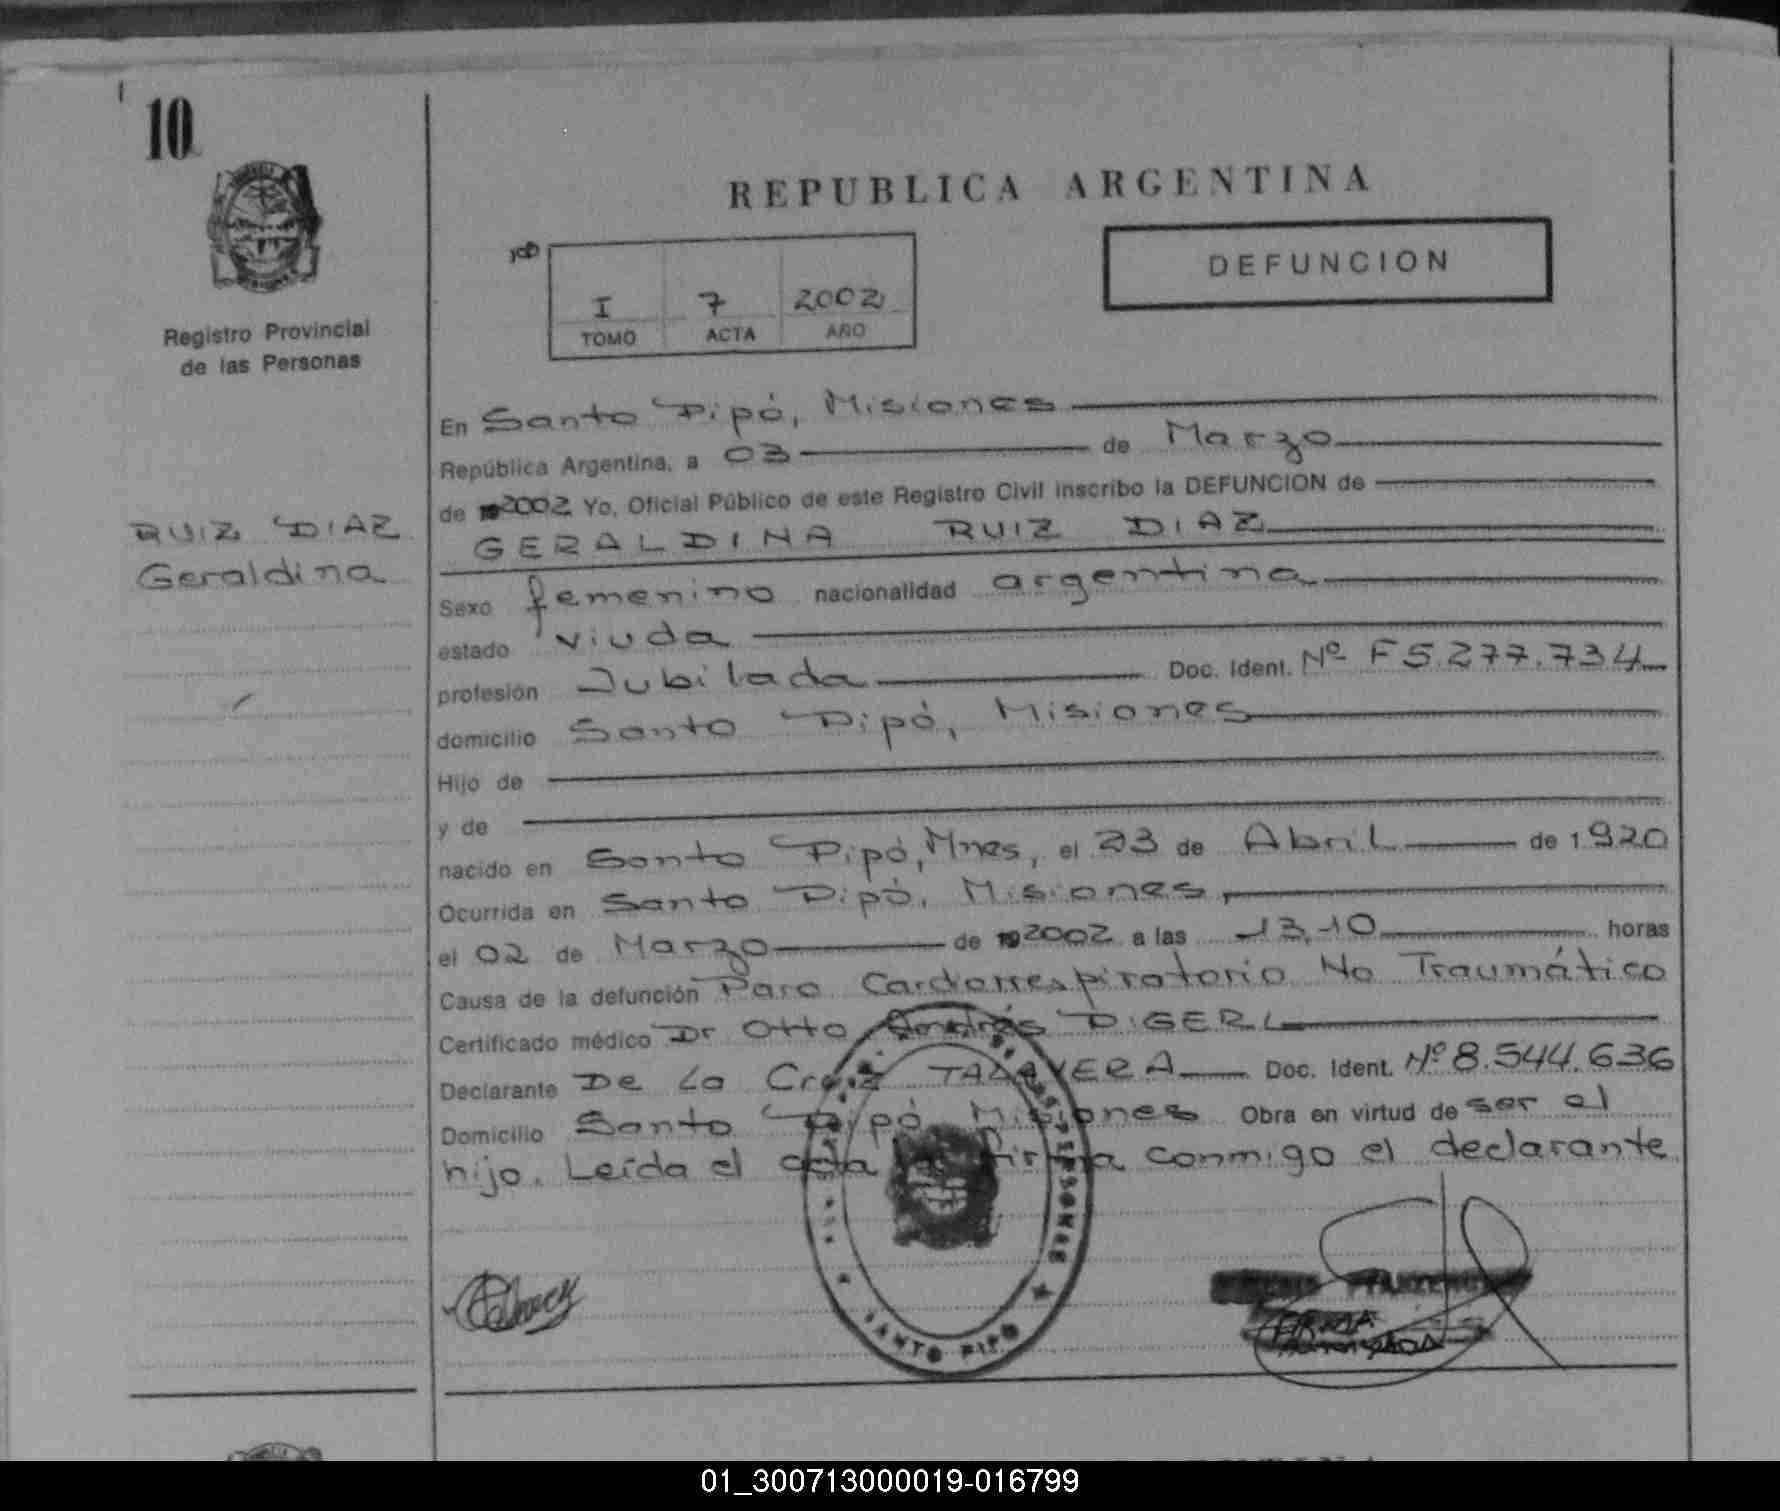 10
REPUBLICA ARGENTINA
DEFUNCION
I 7 2002
TOMO ACTA AÑO
Registro Provincial
de las Personas
RUIZ DIAZ
Geraldina
En Santo Pipó, Misiones
República Argentina, a 03 de Marzo
de 2002 Yo, Oficial Público de este Registro Civil inscribo la DEFUNCION de
GERALDINA RUIZ DIAZ
Sexo femenino nacionalidad argentina
estado viuda
profesión Jubilada Doc. Ident. Nº F5.277.734
domicilio Santo Pipó, Misiones
Hijo de
y de
nacido en Santo Pipó, Mnes, el 23 de Abril de 1.920
Ocurrida en Santo Pipó, Misiones,
el 02 de Marzo de 2002 a las 13,10 horas
Causa de la defunción Paro Cardiorrespiratorio No Traumático
Certificado médico Dr Otto Andrés
Declarante De La Cruz TALAVERA Doc. Ident. Nº 8.544.636
Domicilio Santo Pipó Misiones Obra en virtud de ser el
hijo. Leída el acta la firma conmigo el declarante
PERSONAS
SANTO PIPO
FIRMA
01_300713000019-016799